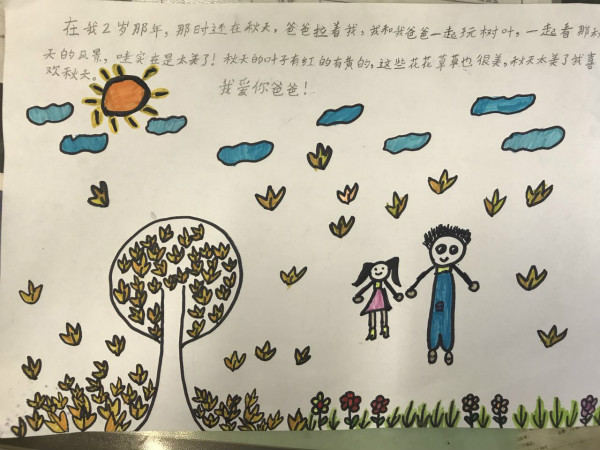 在我2岁那年，那时还在秋天，爸爸拉着我，我和我爸爸一起玩树叶，一起看那秋
天的风景，哇实在是太美了！秋天的叶子有红的有黄的，这些花花草草也很美，秋天太美了我喜
欢秋天。
我爱你爸爸！